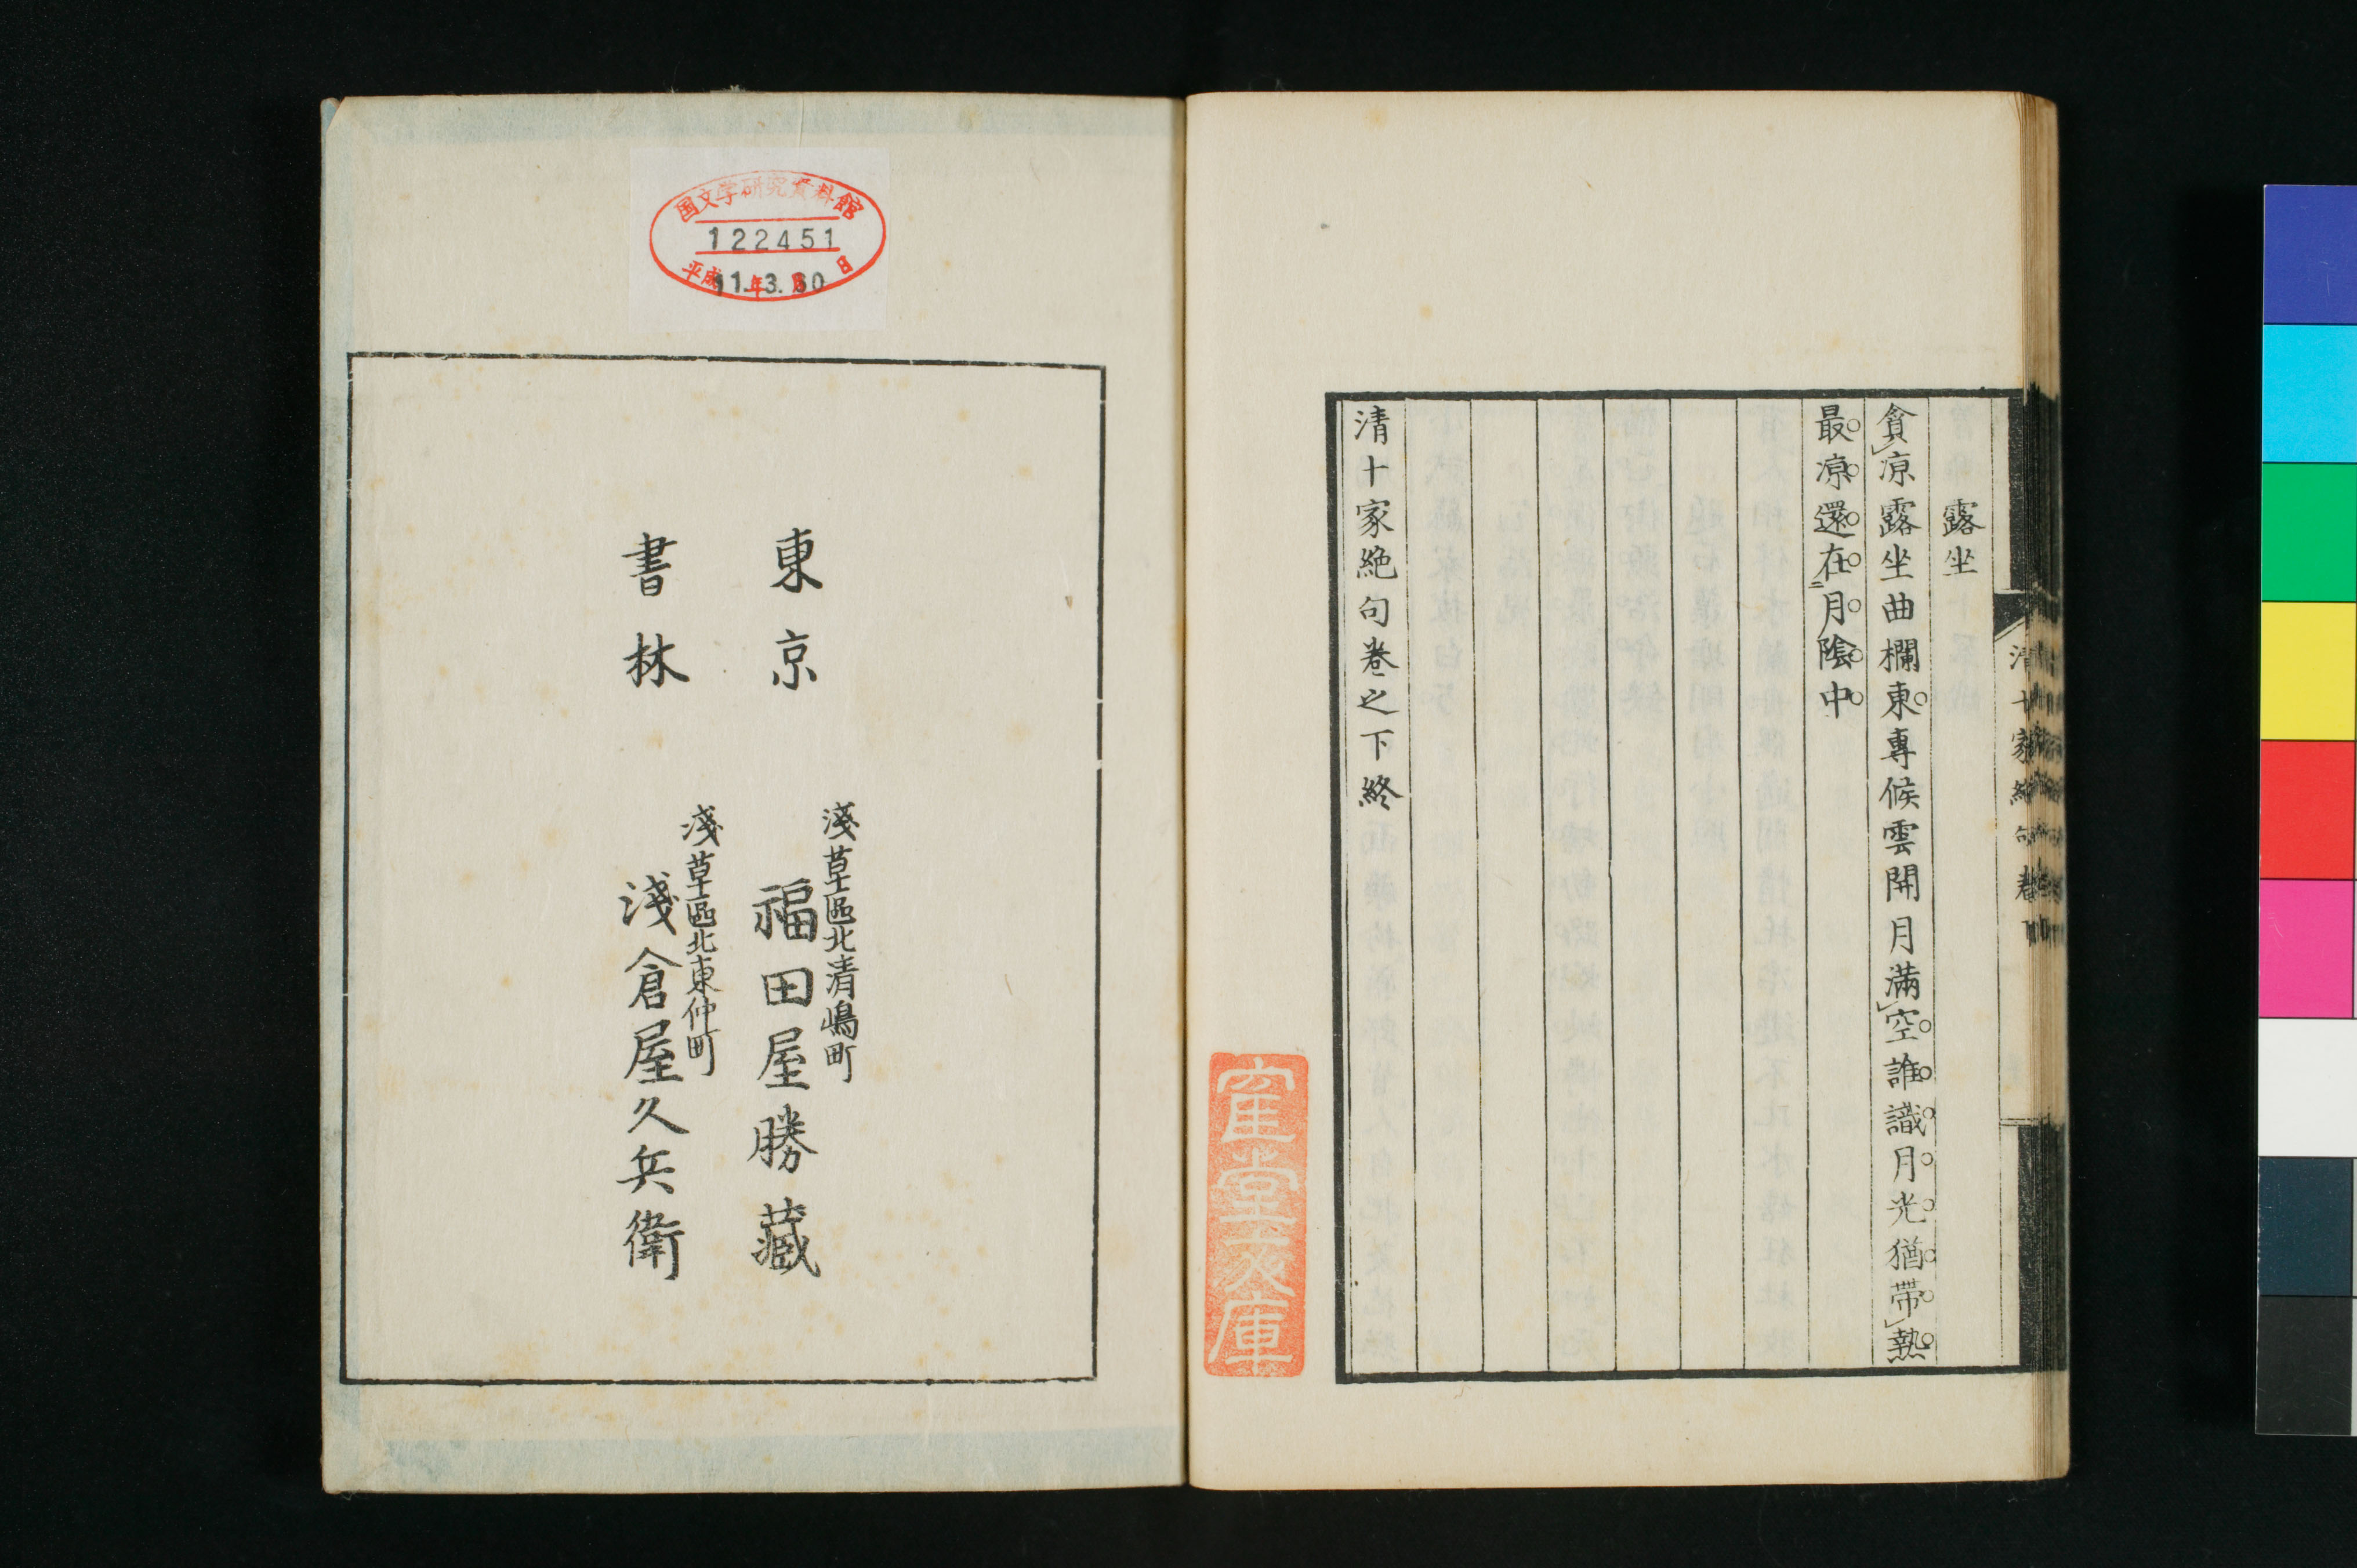 露坐
貪凉露坐曲欄東專候雲開月滿空誰識月光猶帶熱
最凉還在月陰中
清十家絶句卷之下終
清十家絶句卷下
東京
書林
淺草區北清嶋町
福田屋勝藏
淺草區北東仲町
淺倉屋久兵衛
国文学研究資料館
122451
平成11年3月30日
堂文庫